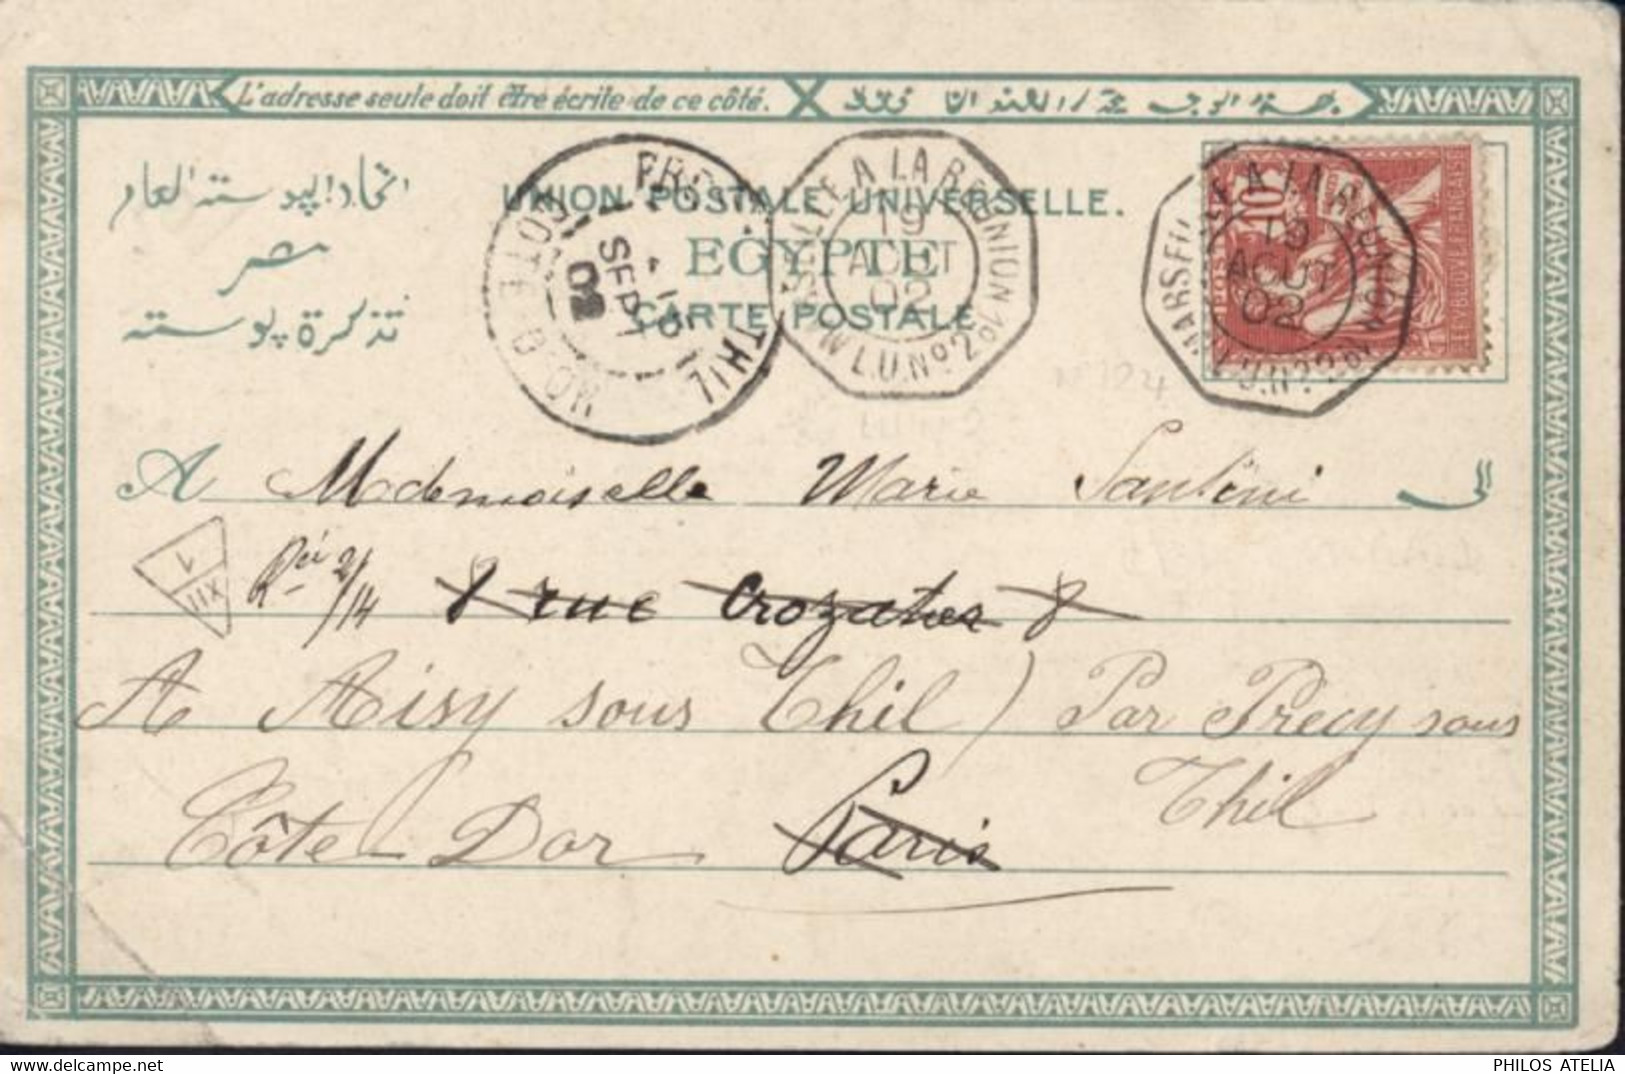 L'adresse seule doit être écrite de ce côté.
اتحاد البوسته العام
مصر
تذكرة بوسته
UNION POSTALE UNIVERSELLE.
EGYPTE
CARTE POSTALE
PRÉCY THIL
1
SEPT
02
COTE-D'OR
MARSEILLE A LA REUNION 1º
19
AOUT
02
L.U.Nº2
MARSEILLE A LA REUNION 1º
19
AOUT
02
L.U.Nº2
10
POSTES
Nº124
A Mademoiselle Marie Santini الى
XII
1
2/14 8 rue Crozatier 8
A Aisy sous Thil ) Par Précy sous
Thil
Côte-Dor Paris
PHILOS ATELIA